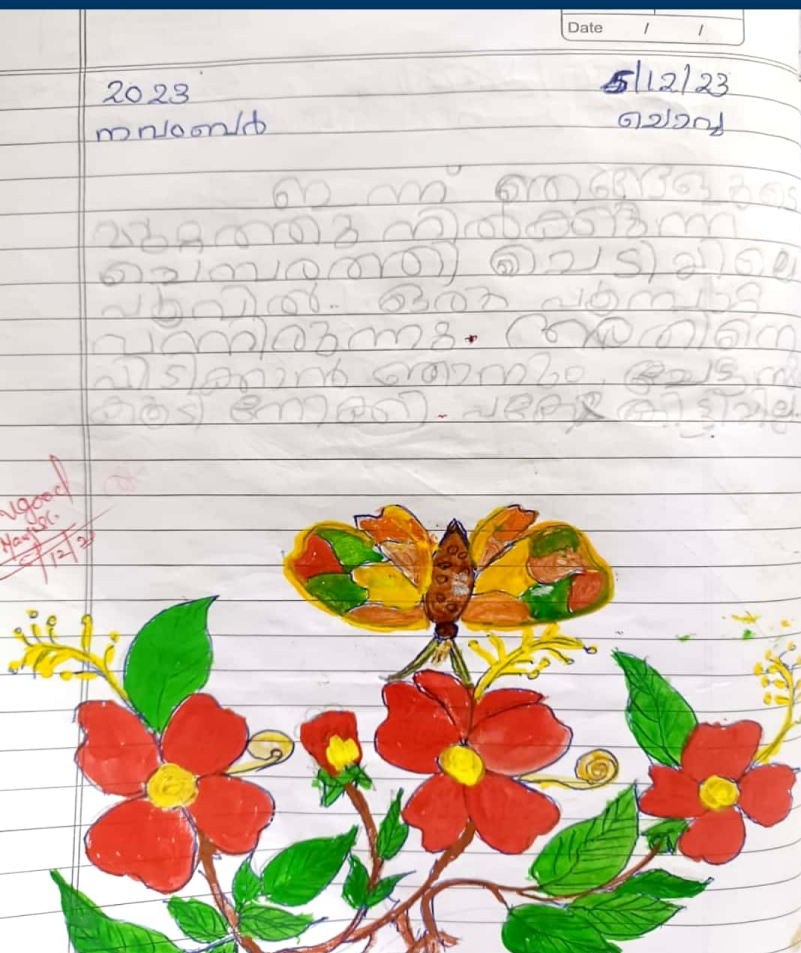 Date / /
2023 5/12/23
നവംബർ ചൊവ്വ
ഇന്ന് ഞങ്ങളുടെ
മുറ്റത്തു നിൽക്കുന്ന
ചെമ്പരത്തി ചെടിയിലെ
പൂവിൽ ഒരു പൂമ്പാറ്റ
വന്നിരുന്നു. അതിനെ
പിടിക്കാൻ ഞാനും ചേട്ടനും
കൂടി നോക്കി. പക്ഷേ കിട്ടിയില്ല.
vgood